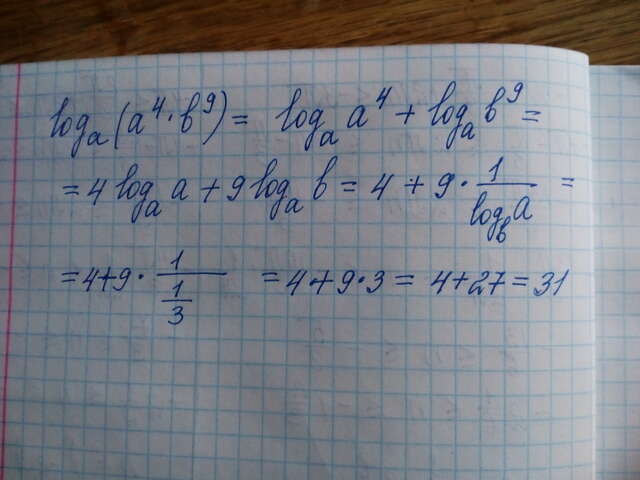 logₐ(a⁴·b⁹) = logₐ a⁴ + logₐ b⁹ =
= 4 logₐ a + 9 logₐ b = 4 + 9 · 1/(log_b a) =
= 4+9 · 1/(1/3) = 4+9·3 = 4+27 = 31